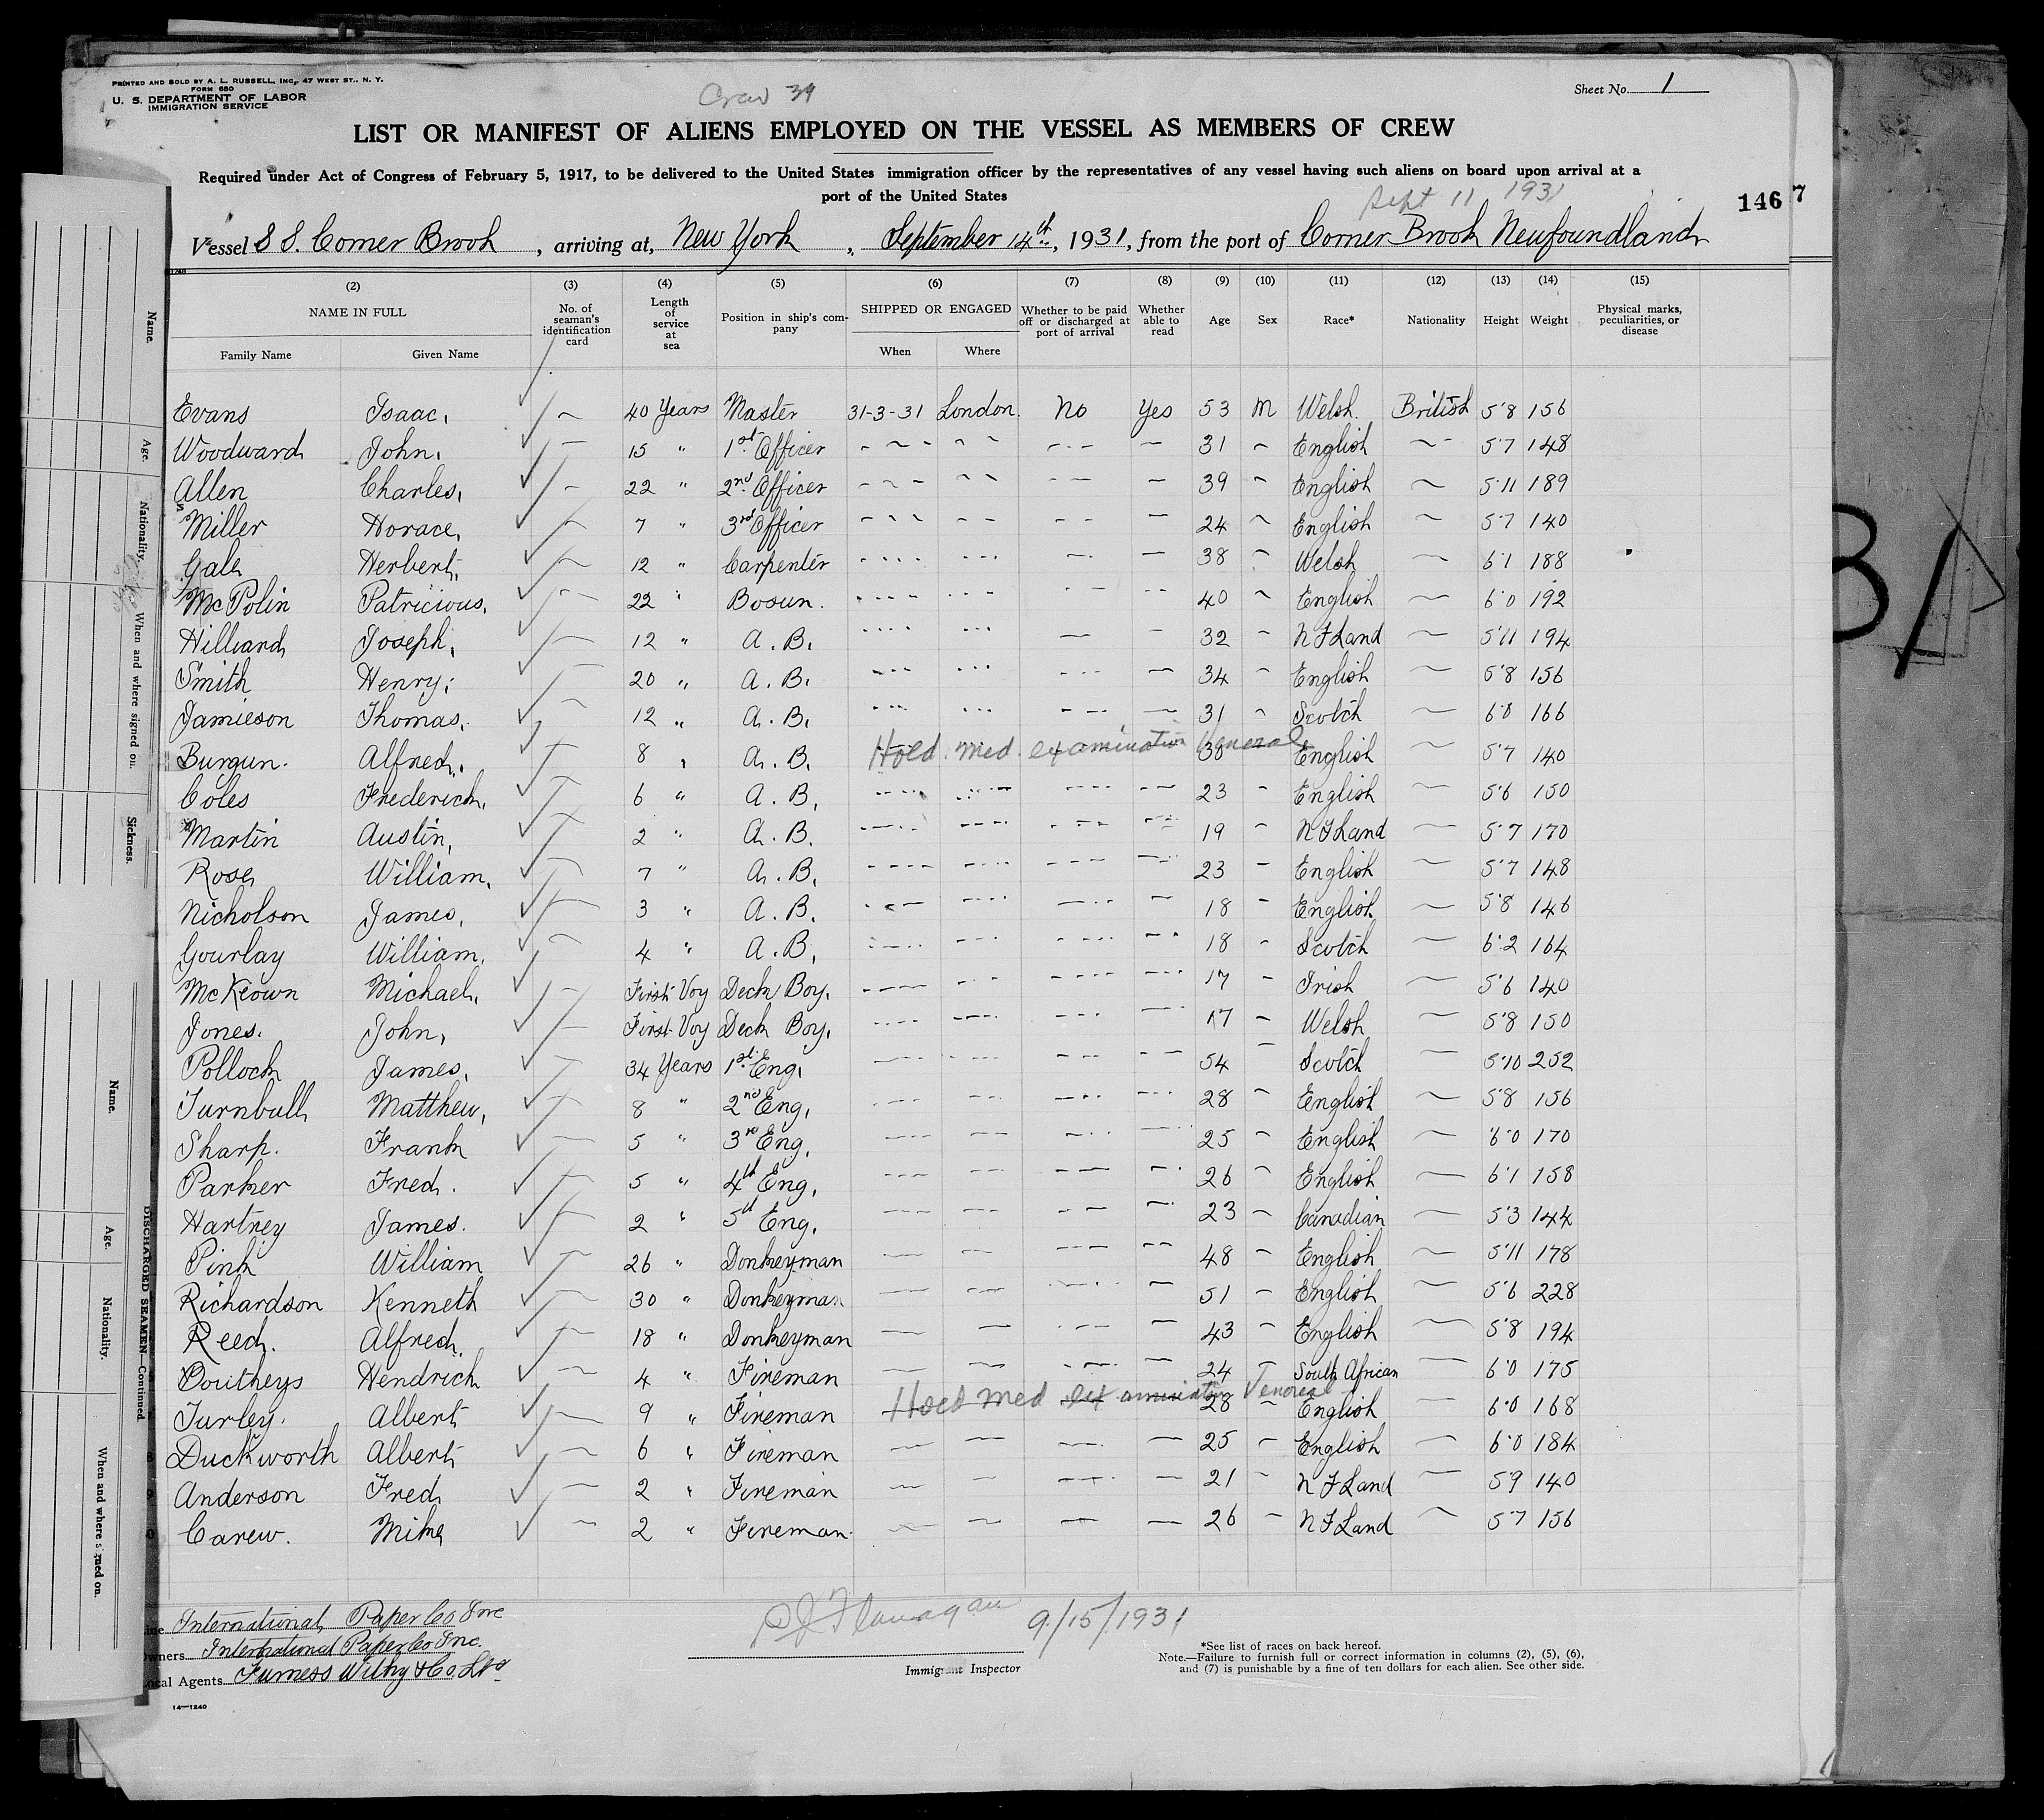 PRINTED AND SOLD BY A. L. RUSSELL, INC., 47 WEST ST., N. Y.
FORM 680
U. S. DEPARTMENT OF LABOR
IMMIGRATION SERVICE
Crew 39
Sheet No. 1
LIST OR MANIFEST OF ALIENS EMPLOYED ON THE VESSEL AS MEMBERS OF CREW
Required under Act of Congress of February 5, 1917, to be delivered to the United States immigration officer by the representatives of any vessel having such aliens on board upon arrival at a
port of the United States
Sept 11 1931
146 7
Vessel S S. Corner Brook, arriving at, New York, September 14th, 1931, from the port of Corner Brook Newfoundland
(2) (3) (4) (5) (6) (7) (8) (9) (10) (11) (12) (13) (14) (15)
NAME IN FULL No. of seaman's identification card Length of service at sea Position in ship's company SHIPPED OR ENGAGED Whether to be paid off or discharged at port of arrival Whether able to read Age Sex Race* Nationality Height Weight Physical marks, peculiarities, or disease
Family Name Given Name When Where
Evans Isaac, 40 Years Master 31-3-31 London. No Yes 53 M Welsh. British 5'8 156
Woodward John, 15 " 1st Officer 31 English 5'7 148
Allen Charles, 22 " 2nd Officer 39 English 5'11 189
Miller Horace, 7 " 3rd Officer 24 English 5'7 140
Gale Herbert, 12 " Carpenter 38 Welsh 6'1 188
McPolin Patricious, 22 " Bosun. 40 English 6'0 192
Hilliard Joseph, 12 " A. B. 32 N F Land 5'11 194
Smith Henry, 20 " A. B. 34 English 5'8 156
Jamieson Thomas, 12 " A. B. 31 Scotch 6'0 166
Burgun. Alfred, 8 " A. B. Hold. med. examination Veneral 38 English 5'7 140
Coles Frederick, 6 " A. B. 23 English 5'6 150
Martin Austin, 2 " A. B. 19 N F Land 5'7 170
Rose William, 7 " A. B. 23 English 5'7 148
Nicholson James, 3 " A. B. 18 English 5'8 146
Gourlay William, 4 " A. B. 18 Scotch 6'2 164
McKeown Michael, First Voy Deck Boy. 17 Irish 5'6 140
Jones. John, First Voy Deck Boy. 17 Welsh 5'8 150
Pollock James, 34 Years 1st Eng. 54 Scotch 5'10 252
Turnbull Matthew, 8 " 2nd Eng. 28 English 5'8 156
Sharp. Frank 5 " 3rd Eng. 25 English 6'0 170
Parker Fred. 5 " 4th Eng. 26 English 6'1 158
Hartney James. 2 " 5th Eng. 23 Canadian 5'3 144
Pink William 26 " Donkeyman 48 English 5'11 178
Richardson Kenneth 30 " Donkeyman 51 English 5'6 228
Reed. Alfred. 18 " Donkeyman 43 English 5'8 194
Doutheys Hendrick 4 " Fireman 24 South African 6'0 175
Turley. Albert 9 " Fireman Hold med examination Veneral 28 English 6'0 168
Duckworth Albert 6 " Fireman 25 English 6'0 184
Anderson Fred 2 " Fireman 21 N F Land 5'9 140
Carew. Mike 2 " Fireman. 26 N F Land 5'7 156
Line International Paper Co Inc
Owners International Paper Co Inc.
Local Agents Furness Withy & Co Ltd
14—1240
P J Flanagan 9/15/1931
Immigrant Inspector
*See list of races on back hereof.
Note.—Failure to furnish full or correct information in columns (2), (5), (6),
and (7) is punishable by a fine of ten dollars for each alien. See other side.
Name.
Age.
Nationality.
When and where signed on.
Sickness.
DISCHARGED SEAMEN—Continued
Name.
Age.
Nationality.
When and where signed on.